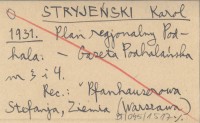 STRYJEŃSKI Karol
1931. Plan regjonalny Pod-
hala. - Gazeta Podhalańska
nr 3 i 4.
Rec.: Pfanhauserowa
Stefanja, Ziemia (Warszawa)